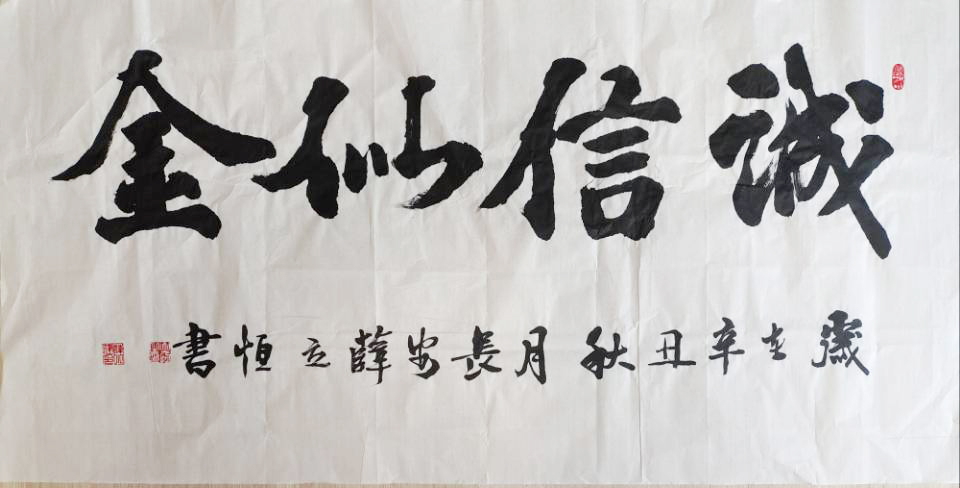 誠信似金
歲在辛丑秋月長安薛立恒書